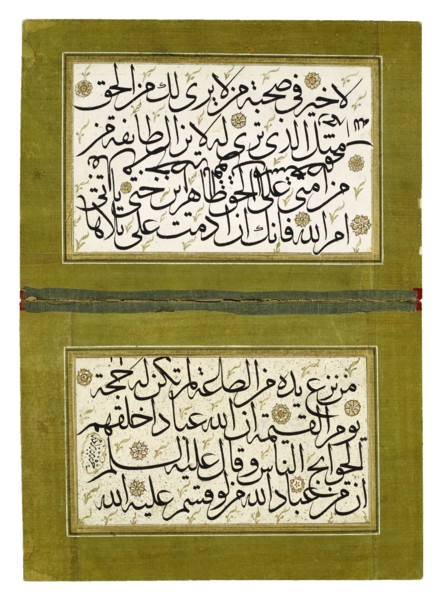 لا خير في صحبة من لا يرى لك من الحق
مثل الذي ترى له لا يزال طائفة من
من امتي على الحق ظاهرين حتى ياتي
امر الله فانك ان ادمت على
من نزع يده من الطاعة لم تكن له حجة
يوم القيمة ان لله عبادا خلقهم
لحوايج الناس وقال عليه السلم
ان من عباد الله من لو اقسم على الله